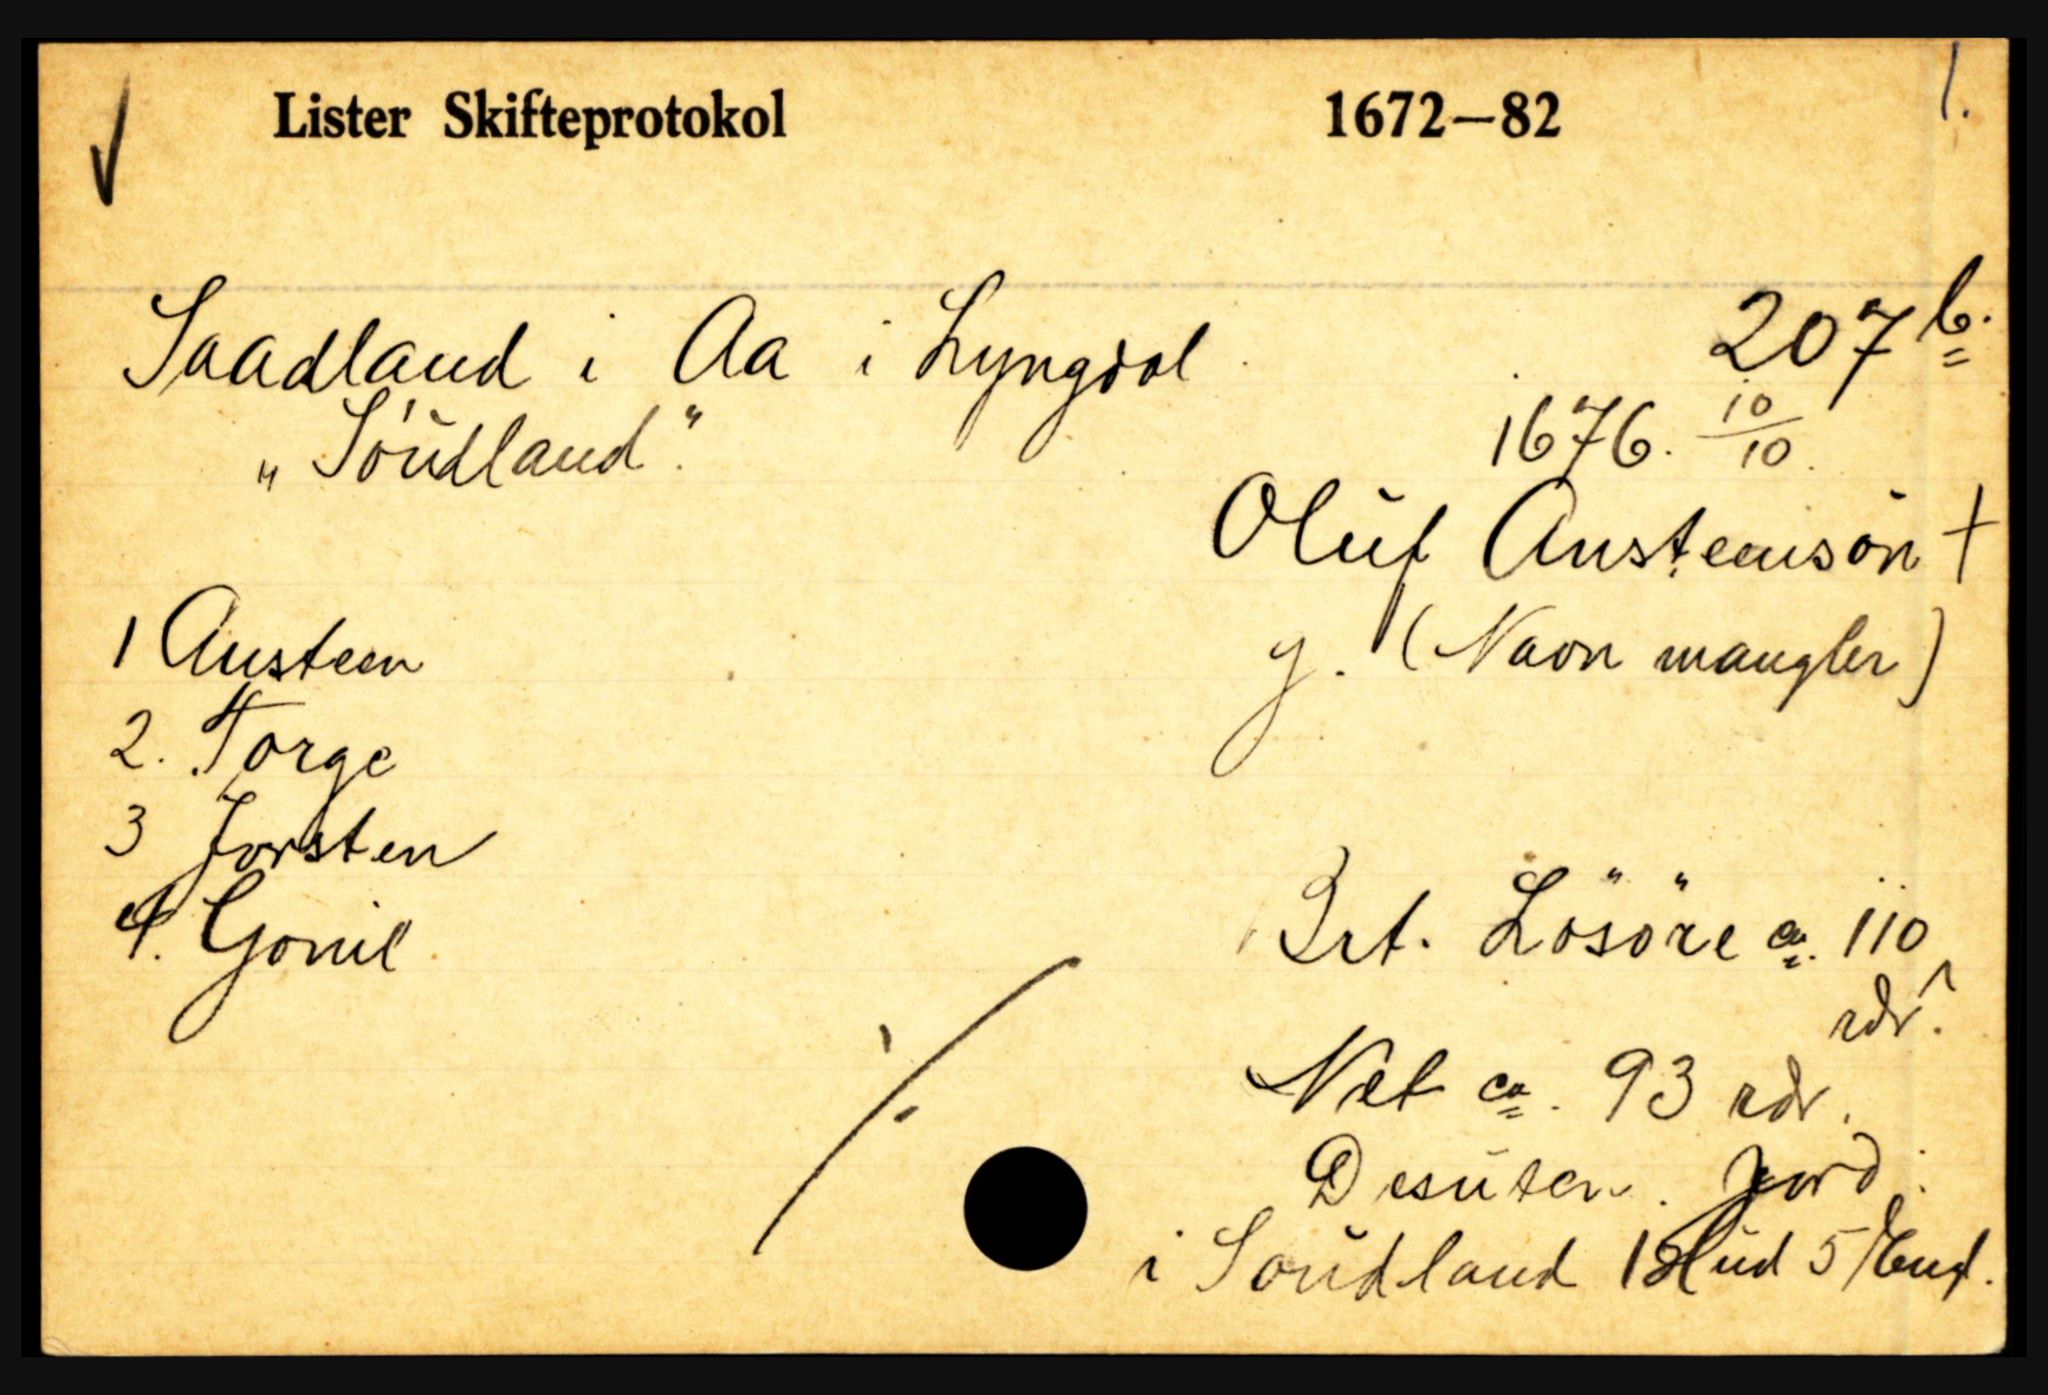 Lister Skifteprotokol 1672—82 1.
Saadland i Aa i Lyngdal 207 b.
"Soudland" 1676. 10/10.
Oluf Austensøn †
1 Austeen g. (Navn mangler)
2. Torge
3 Torsten
4. Gonil Brt. Løsøre ca. 110
rdr.
Net ca. 93 rdr.
Desuten. Jord:
i Soudland 1 Hud 5 Eng.